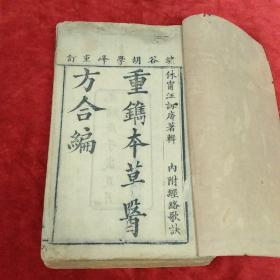 谷胡學峰重訂
休甯汪訒庵著輯
內附經絡歌訣
重鐫本草醫
方合編